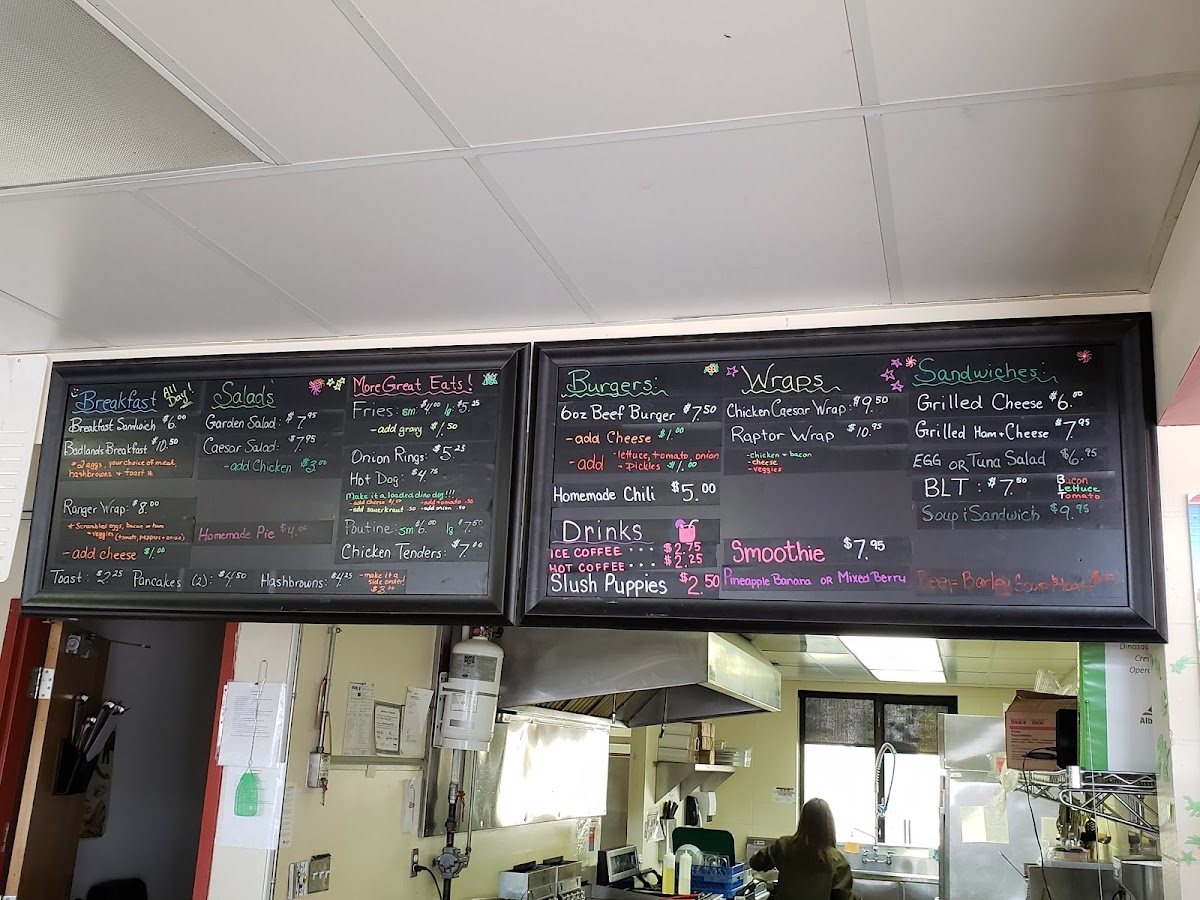 Breakfast All Day!
Breakfast Sandwich $6.00
Badlands Breakfast $10.50
* 2 eggs, your choice of meat,
hashbrowns + toast *
Ranger Wrap: $8.00
* Scrambled eggs, bacon or ham
+ veggies (tomato, peppers + onion)
- add cheese $1.00
Toast: $2.25 Pancakes (2): $4.50 Hashbrowns: $4.25 - make it a
side order
Salads
Garden Salad: $7.95
Caesar Salad: $7.95
- add Chicken $3.00
Homemade Pie $4.00
More Great Eats!
Fries: sm $4.00 lg $5.25
- add gravy $1.50
Onion Rings: $5.25
Hot Dog: $4.75
Make it a loaded dino dog!!!
- add cheese - add tomato .50
- add sauerkraut .50 - add onion
Poutine: sm $6.00 lg $7.50
Chicken Tenders: $7.00
Burgers:
6oz Beef Burger $7.50
- add Cheese $1.00
- add lettuce, tomato, onion
+ Pickles $1.00
Homemade Chili $5.00
Drinks
ICE COFFEE ... $2.75
HOT COFFEE ... $2.25
Slush Puppies $2.50
Wraps
Chicken Caesar Wrap: $9.50
Raptor Wrap $10.95
- chicken + bacon
- cheese
- veggies
Smoothie $7.95
Pineapple Banana OR Mixed Berry
Sandwiches:
Grilled Cheese $6.00
Grilled Ham + Cheese $7.95
EGG OR Tuna Salad $6.95
BLT: $7.50 Bacon
Lettuce
Tomato
Soup + Sandwich $9.95
Beef + Barley Soup